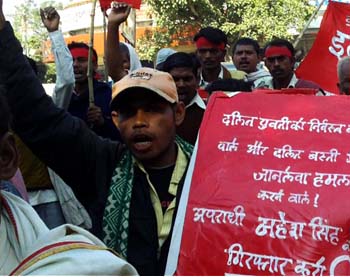 दलित युवती को निर्वस्त्र
वाले और दलित बस्ती
जानलेवा हमल
करने वाले!
अपराधी महेश सिंह
गिरफ्तार करो